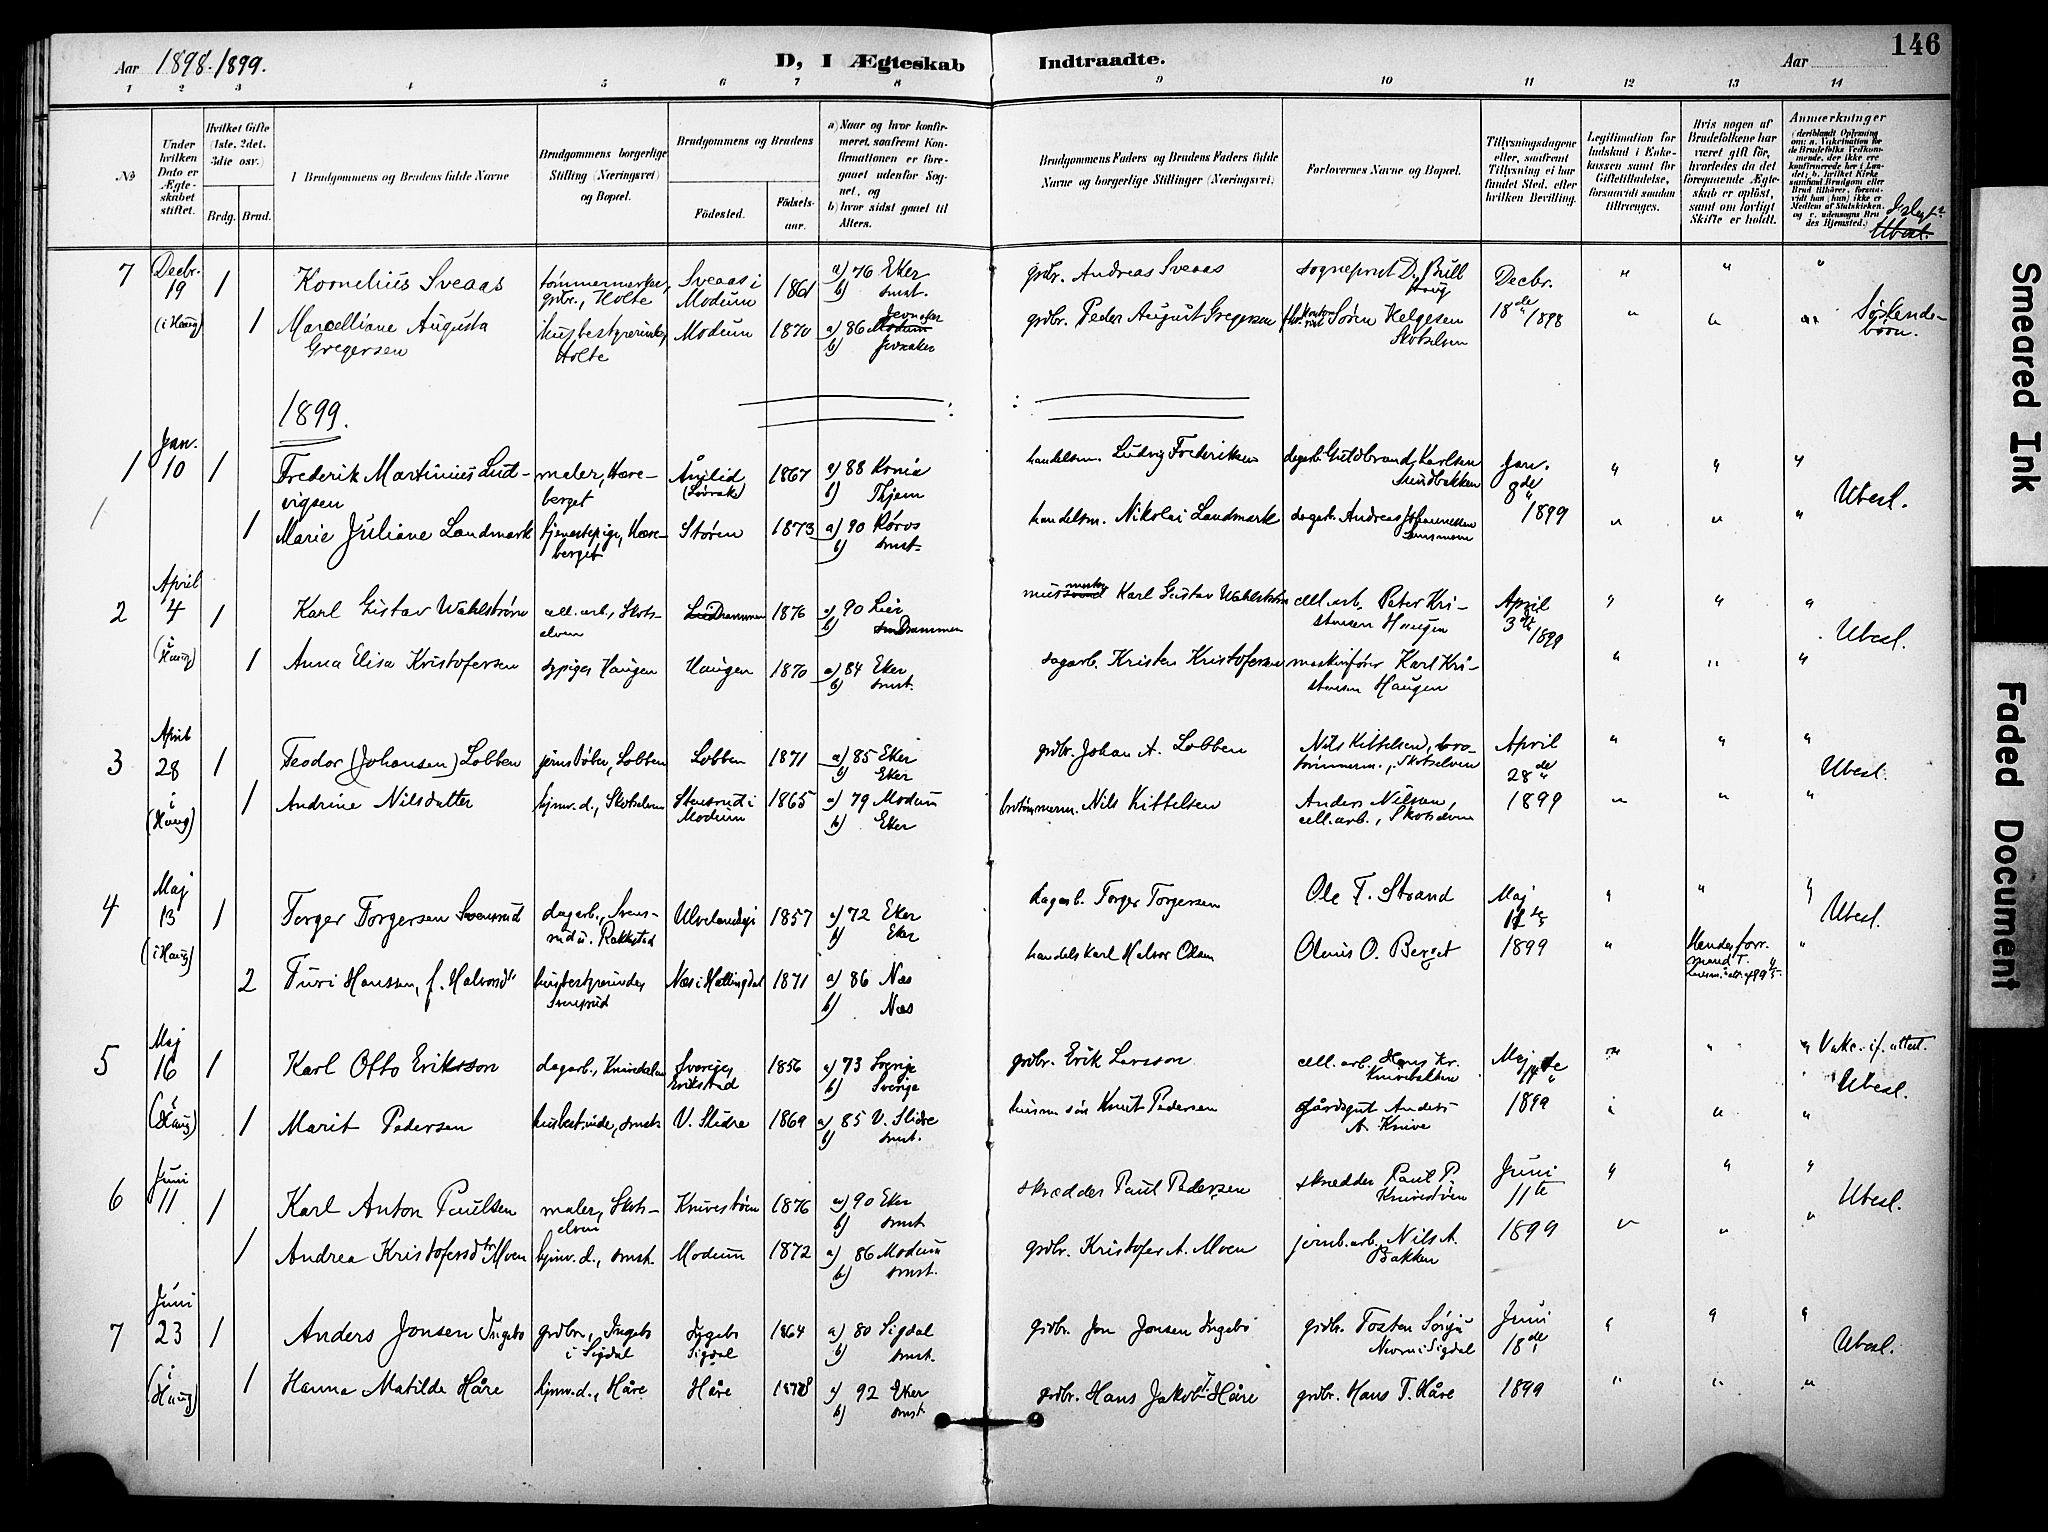 146
Aar 1898-1899.
D, I Ægteskab Indtraadte.
Aar
1 2 3 4 5 6 7 8 9 10 11 12 13 14
No
Under hvilken Dato er Ægteskabet stiftet.
Hvilket Gifte (1ste, 2det, 3die osv.)
Brdg. Brud.
Brudgommens og Brudens fulde Navne
Brudgommens borgerlige Stilling (Næringsvei) og Bopæl.
Brudgommens og Brudens
Födested.
Födselsaar.
a) Naar og hvor konfirmeret, saafremt Konfirmationen er foregaaet udenfor Sognet, og
b) hvor sidst gaaet til Alters.
Brudgommens Faders og Brudens Faders fulde Navne og borgerlige Stillinger (Næringsvei)
Forlovernes Navne og Bopæl.
Tillysningsdagene eller, saafremt Tillysning ei har fundet Sted, efter hvilken Bevilling.
Legitimation for Indskud i Enkekassen samt for Giftetilladelse, forsaavidt saadan tiltrænges.
Hvis nogen af Brudefolkene har været gift før, hvorledes da det foregaaende Ægteskab er opløst, samt om lovligt Skifte er holdt.
Anmærkninger
7 Decbr. 19 1 Kornelius Sveaas tømmermerker, grdbr., Holte Sveaas i Modum 1861 a) 76 Eker b) smst. grdbr. Andreas Sveaas sogneprest D. Bull Haug Decbr. 18de 1898 " " "
(i Haug) 1 Marcelliane Augusta Gregersen husbestyrerinde, Holte Modum 1870 a) 86 Modum Jevnaker b) Jevnaker grdbr. Peder August Gregersen Søren Helgesen Skotselven " " " Søskendebørn.
1899.
1 Jan. 10 1 Frederik Martinius Ludvigsen maler, Hæreberget 1867 a) 88 b) Thjem handelsm. Ludvig Frederiksen dagarb. Guldbrand Karlsen Sundbakken Jan. 8de 1899 " " " Ubesl.
1 Marie Juliane Landmark tjenestepige, Hæreberget Støren 1873 a) 90 Røros b) smst. handelsm. Nikolai Landmark dagarb. Andreas Johannessen " " "
2 April 4 1 Karl Gustav Wahlstrøm cell. arb., Skotselven Drammen 1876 a) 90 Lier b) Drammen Karl Gustav Wahlstrøm cell. arb. Peter Kristensen Haugen April 3die 1899 " " " Ubesl.
(i Haug) 1 Anna Elisa Kristofersen sypige, Haugen Haugen 1870 a) 84 Eker b) smst. dagarb. Kristen Kristofersen maskinfører Karl Kristensen Haugen " " "
3 April 28 1 Teodor (Johansen) Lobben jernstøber, Lobben Lobben 1871 a) 85 Eker b) Eker grdbr. Johan A. Lobben Nils Kittelsen, brotømmerm., Skotselven April 28de 1899 " " " Ubesl.
i (Haug) 1 Andrine Nilsdatter hjmv. d., Skotselven Stensrud i Modum 1865 a) 79 Modum b) Eker brotømmerm. Nils Kittelsen Anders Nilsen, cell. arb., Skotselven " " "
4 Maj 13 1 Torger Torgersen Svensrud dagarb., Svensrud u. Rakkestad 1857 a) 72 Eker b) Eker dagarb. Torger Torgersen Ole T. Strand Maj 1899 " " " Ubesl.
(i Haug) 2 Turi Hanssen, f. Halvorsdtr husbestyrerinde, Svensrud Næs i Hallingdal 1871 a) 86 Næs b) Næs handelskarl Halvor Olsen Olaus O. Berget "
5 Maj 16 1 Karl Otto Eriksson dagarb., Knivedalen Sverige, Erikstad 1856 a) 73 Sverige b) Sverige grdbr. Erik Larsson cell. arb. Hans Kr. Knivebakken Maj 14de 1899 " " " Vakc. if. attest. Ubesl.
(i Haug) 1 Marit Pedersen husbestinde, smst. V. Slidre 1869 a) 85 V. Slidre b) smst. Knut Pedersen gårdsgut Anders A. Knive " "
6 Juni 11 1 Karl Anton Paulsen maler, Skotselven Knivestøen 1876 a) 90 Eker b) smst skrædder Paul Pedersen skrædder Paul P. Knivestøen Juni 11te 1899 " " " Ubesl.
1 Andrea Kristofersdtr Moen hjmv. d., smst. Modum 1872 a) 86 Modum b) smst. grdbr. Kristofer A. Moen jernb. arb. Nils A. Bakken " " "
7 Juni 23 1 Anders Jonsen Ingebo grdbr., Ingebo i Sigdal Ingebo Sigdal 1864 a) 80 Sigdal b) smst. grdbr. Jon Jonsen Ingebo grdbr. Tosten Nerm i Sigdal Juni 18de 1899 " " " Ubesl.
i (Haug) 1 Hanna Matilde Håre hjmv. d., Håre Håre 1878 a) 92 Eker b) smst. grdbr. Hans Jakob T. Håre grdbr. Hans T. Håre " " "
Smeared Ink
Faded Document